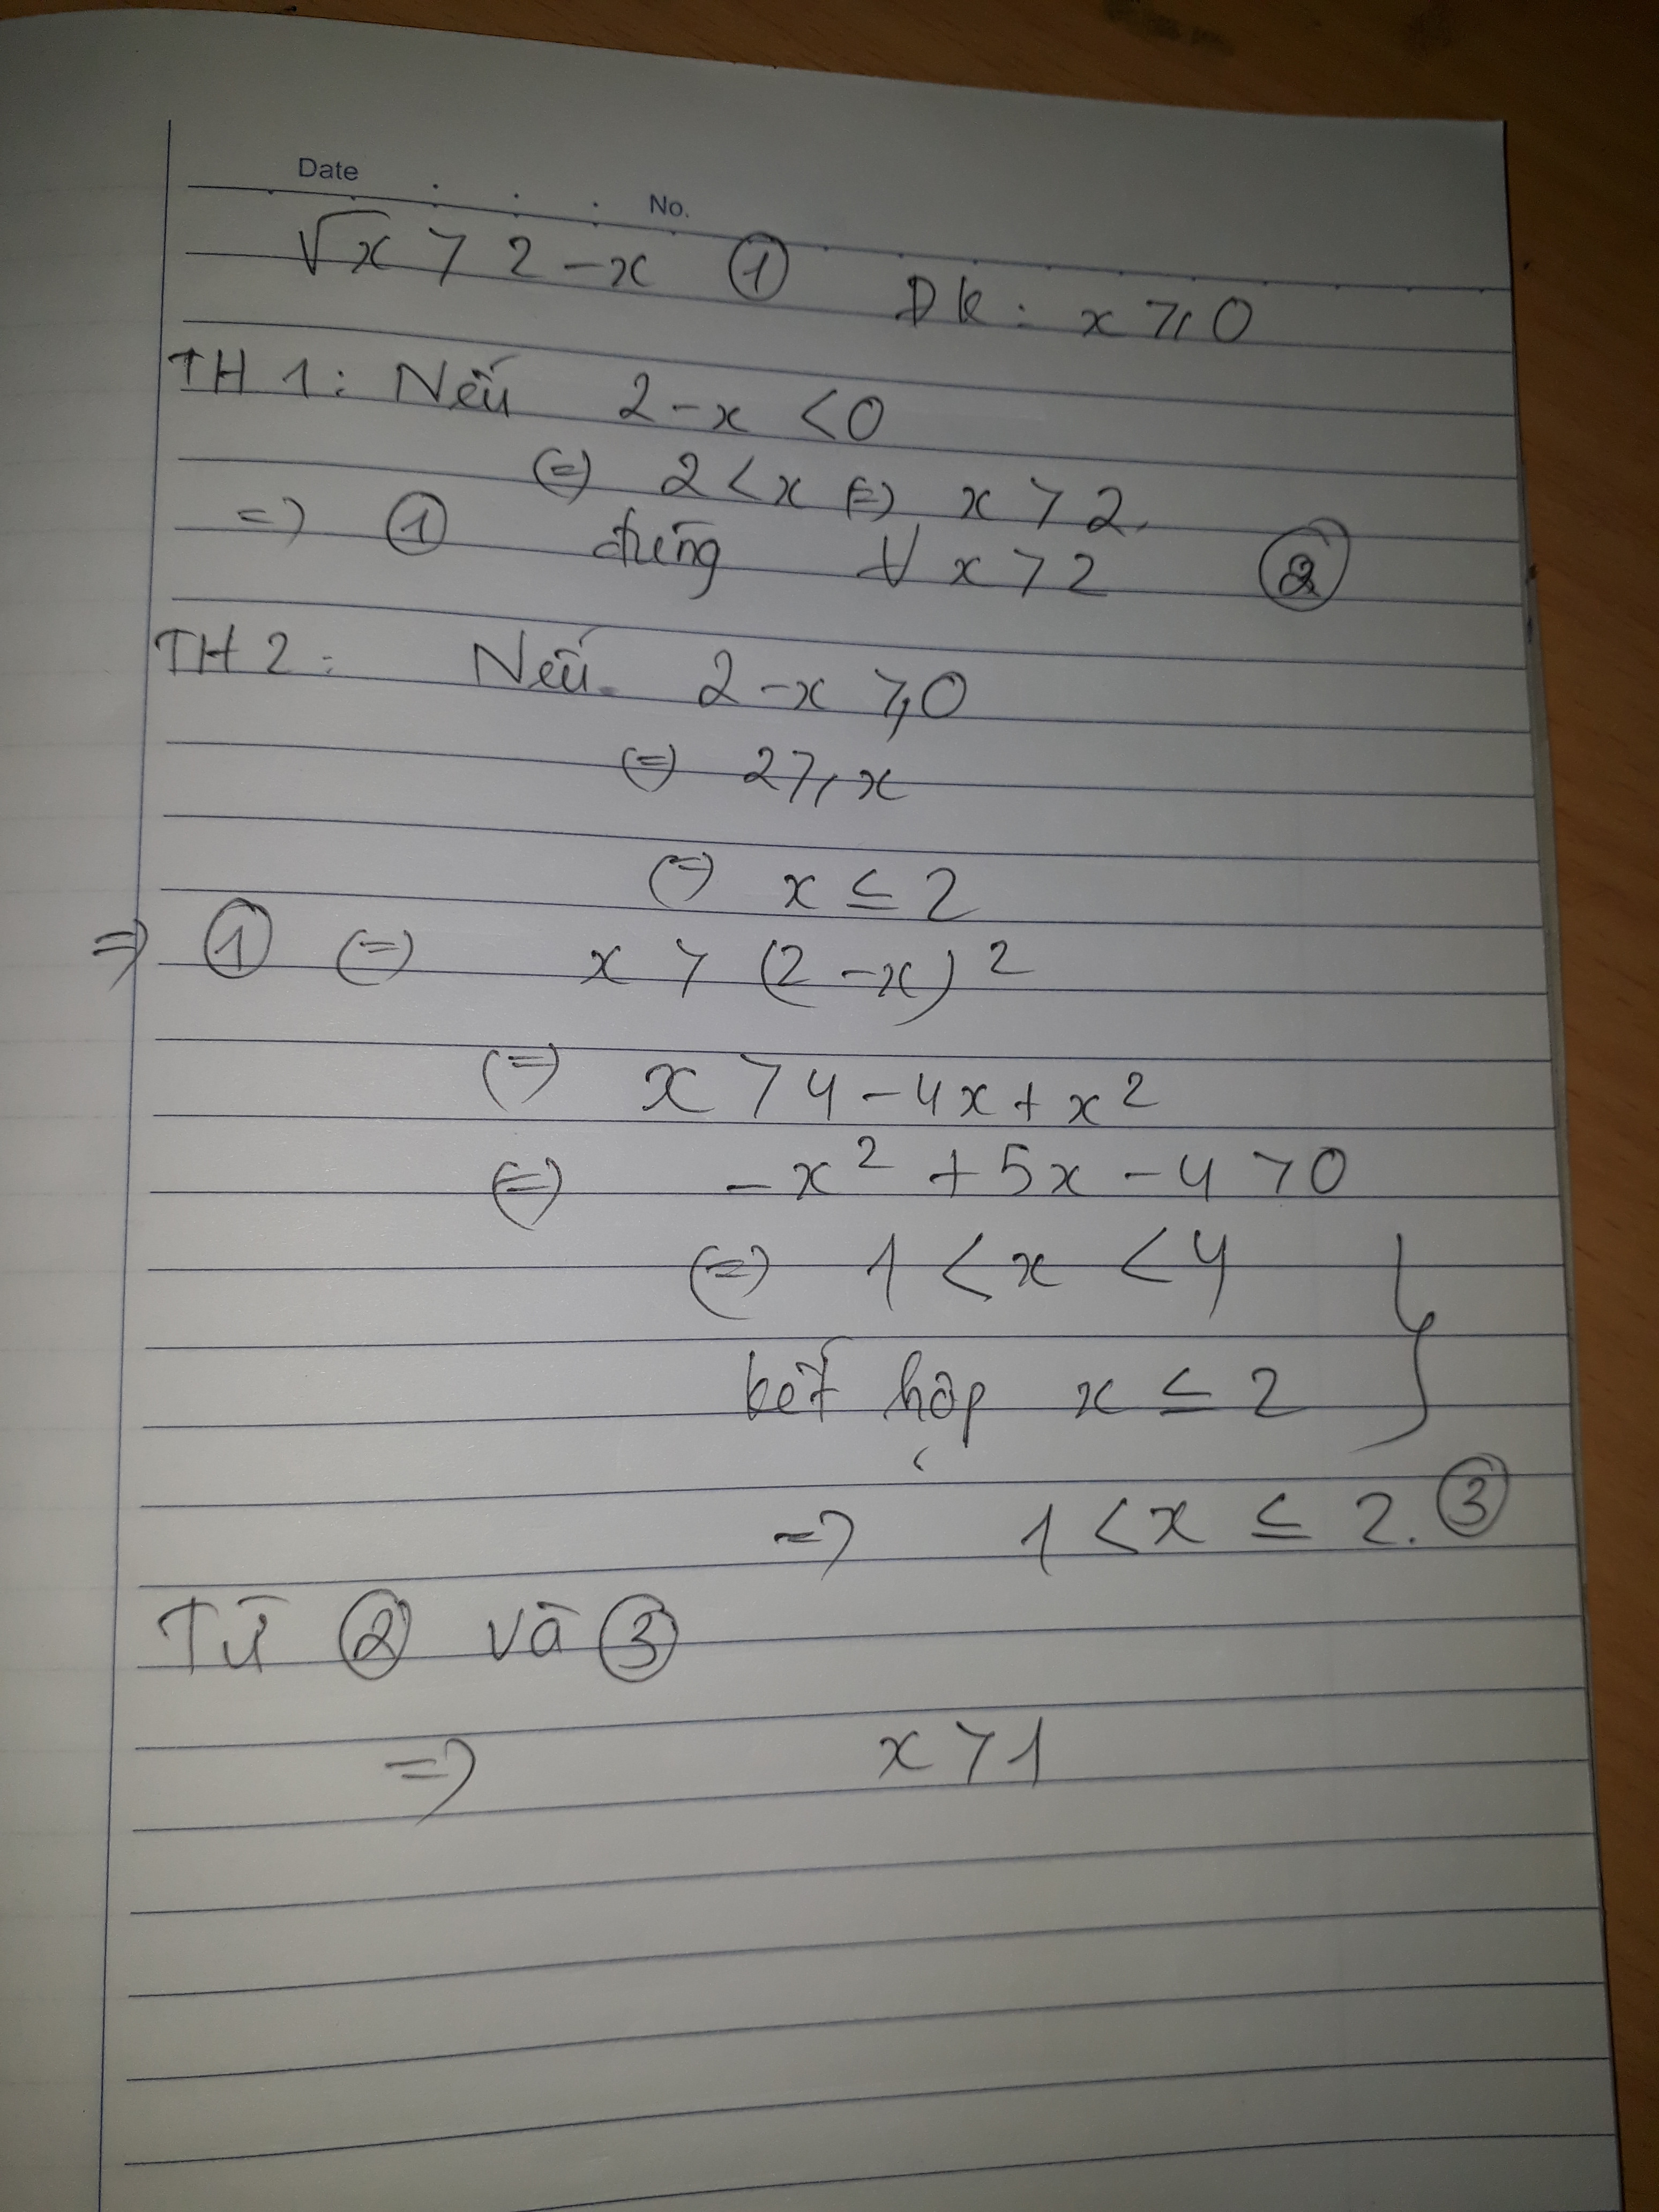 Date
No.
√x > 2 - x ① ĐK: x ≥ 0
TH1: Nếu 2 - x < 0
(=) 2 < x (=) x > 2.
=> ① đúng ∀ x > 2 ②
TH2: Nếu 2 - x ≥ 0
(=) 2 ≥ x
(=) x ≤ 2
=> ① (=) x > (2 - x)²
(=) x > 4 - 4x + x²
(=) - x² + 5x - 4 > 0
(=) 1 < x < 4
kết hợp x ≤ 2
=> 1 < x ≤ 2. ③
Từ ② và ③
=> x > 1